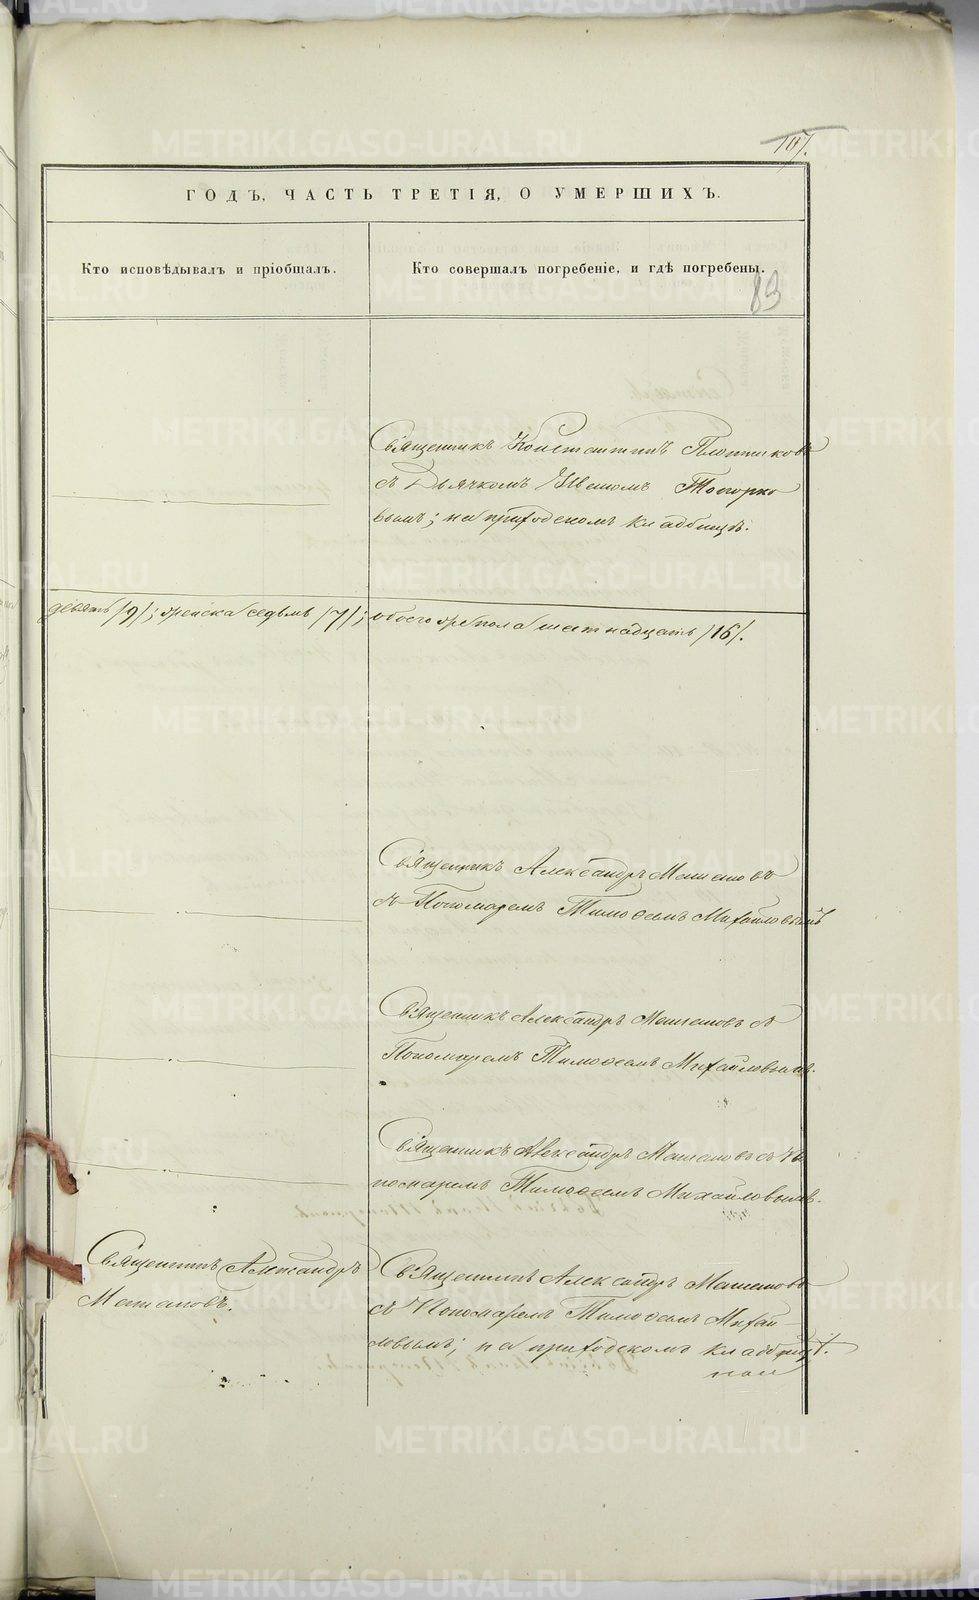 107.
ГОДЪ, ЧАСТЬ ТРЕТІЯ, О УМЕРШИХЪ.
Кто исповѣдывалъ и пріобщалъ.
Кто совершалъ погребеніе, и гдѣ погребены.
83
Священникъ Константинъ Плотниковъ
съ Дьячкомъ Топорко
вымъ; на приходскомъ кладбищѣ.
девять /9/; женска седьмь /7/; обоего же пола шестнадцать /16/.
Священникъ Александръ
съ Пономаремъ Тимоѳеемъ Михайловымъ
Священникъ Александръ съ
Пономаремъ Тимоѳеемъ Михайловымъ.
Священникъ Александръ съ По
номаремъ Тимоѳеемъ Михайловымъ.
Священникъ Александръ
Священникъ Александръ
съ Пономаремъ Тимоѳеемъ Михай-
ловымъ; на приходскомъ кладбищѣ.
METRIKI.GASO-URAL.RU